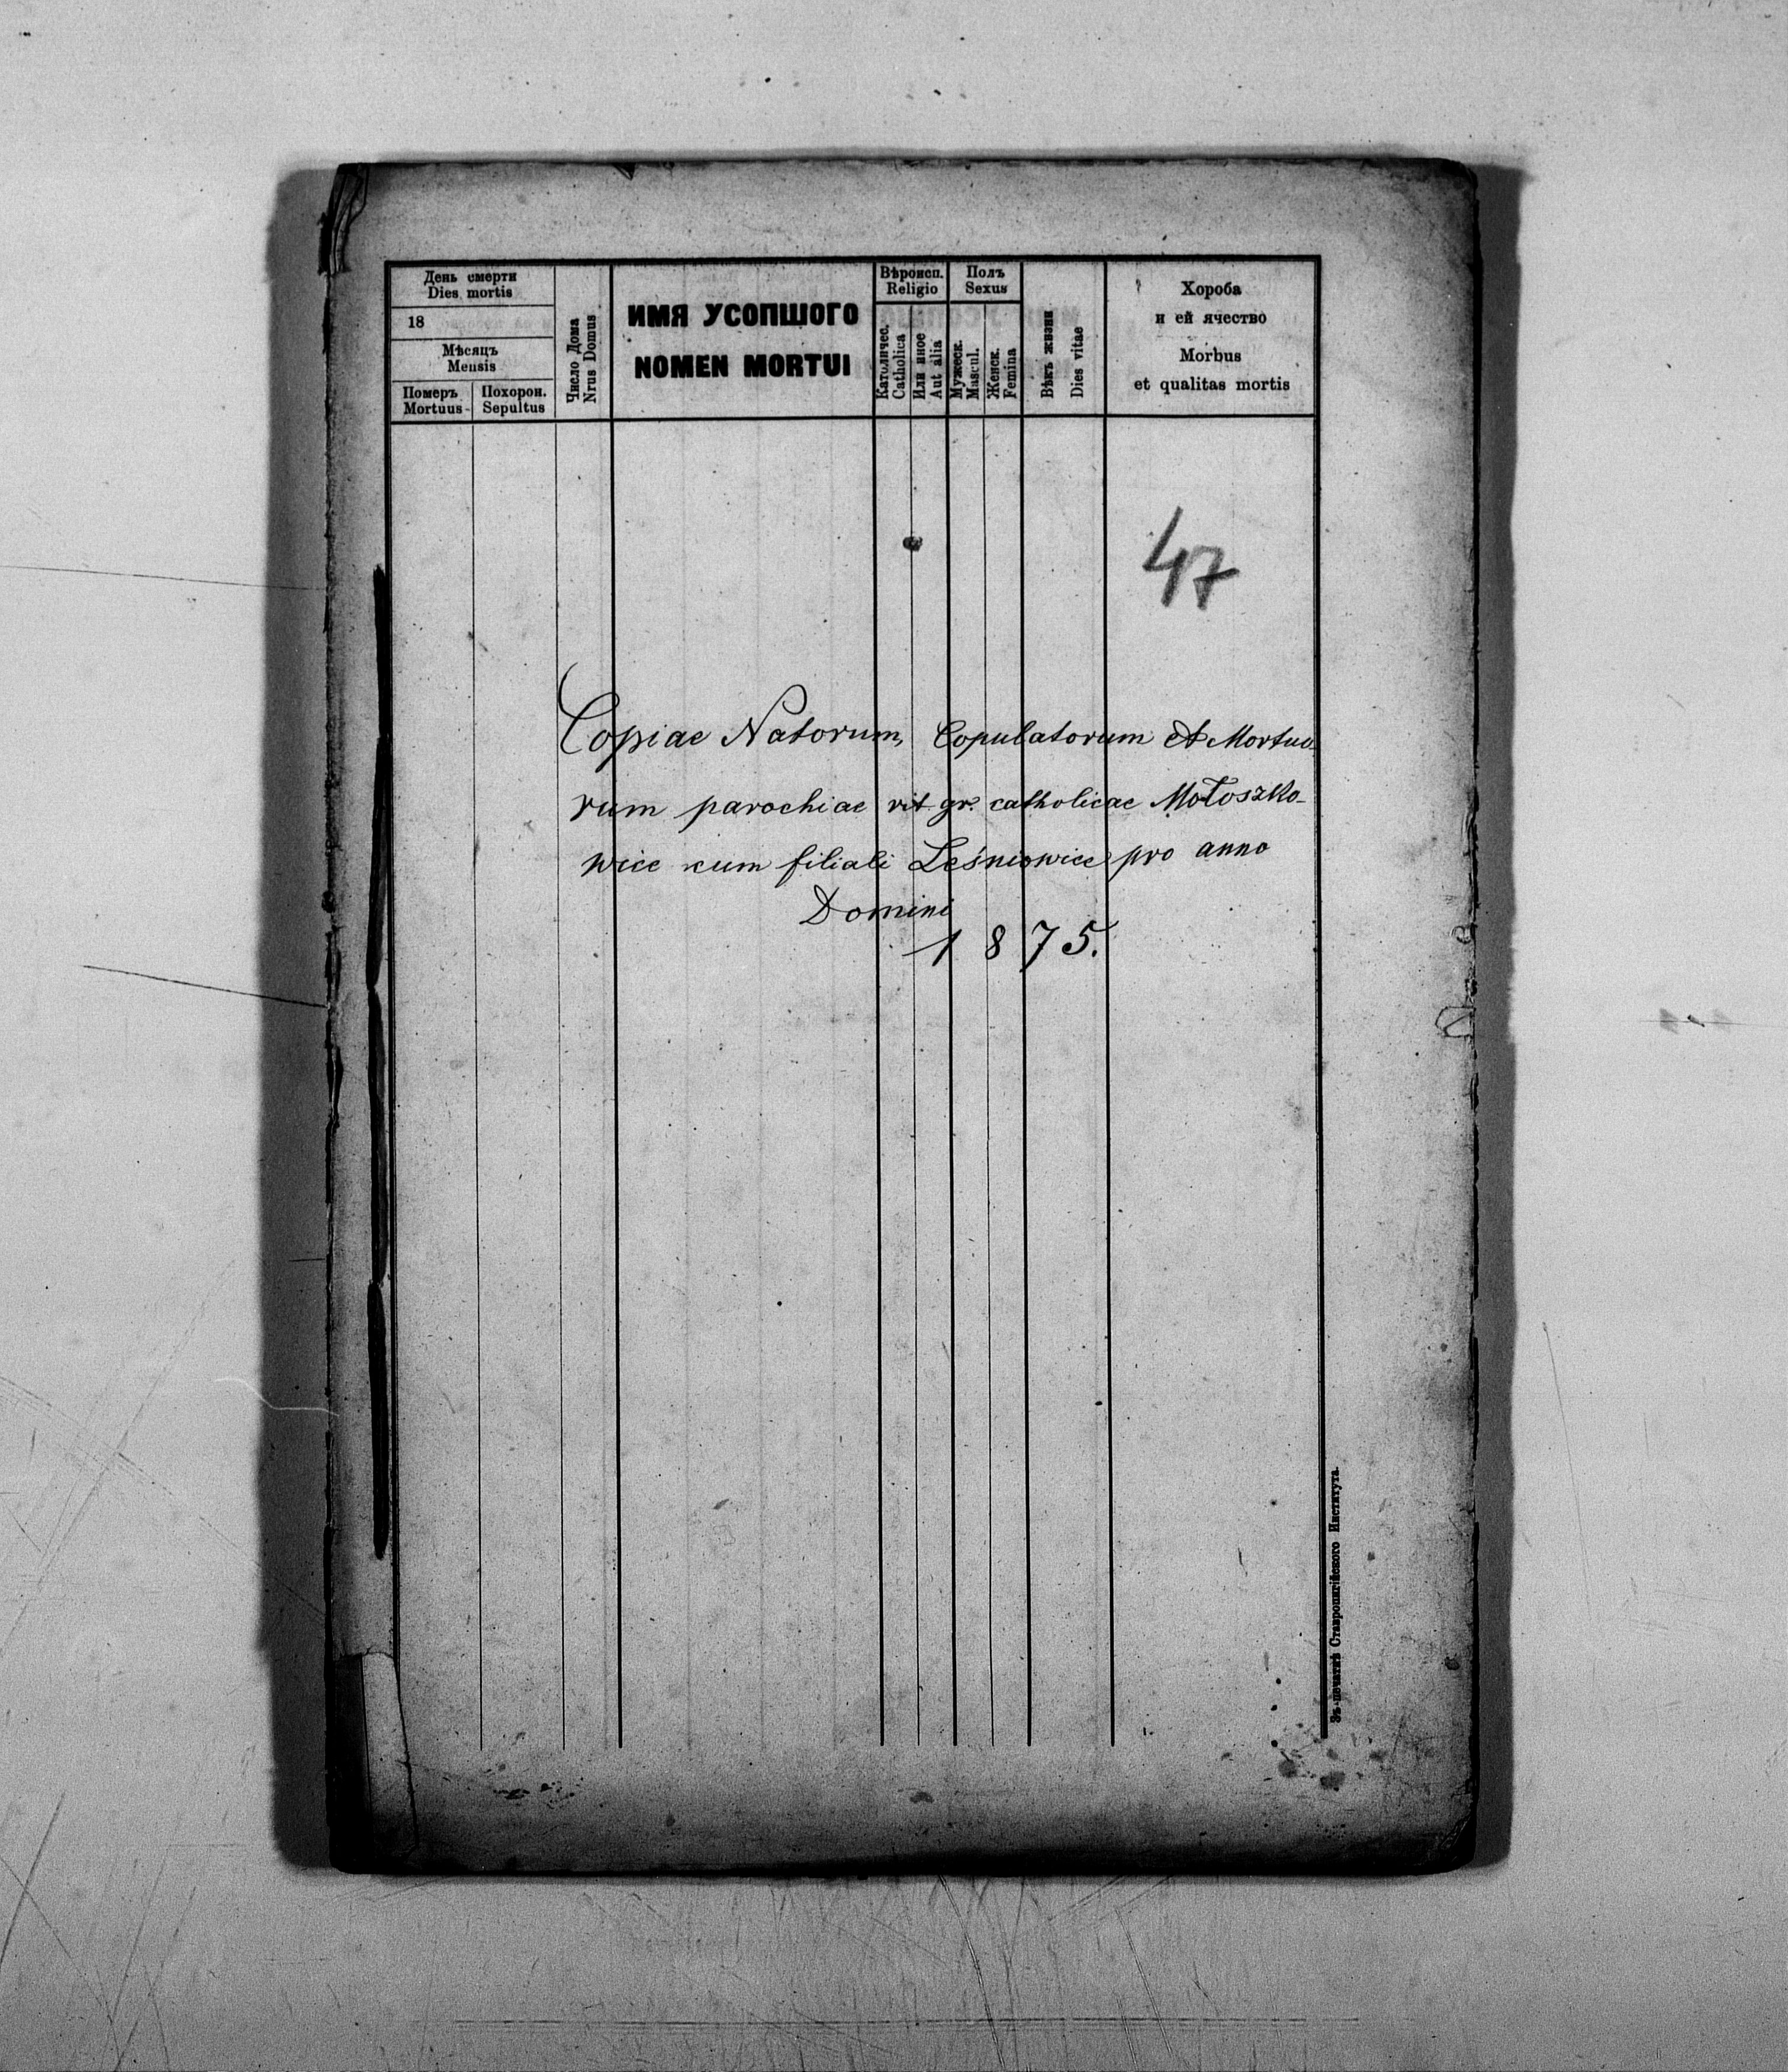 День смерти
Dies mortis
18
Мѣсяцъ
Mensis
Померъ
Mortuus
Похорон.
Sepultus
Число Дома
Nrus Domus
ИМЯ УСОПШОГО
NOMEN MORTUI
Вѣроисп.
Religio
Католичес.
Catholica
Или иное
Aut alia
Полъ
Sexus
Мужеск.
Mascul.
Женск.
Femina
Вѣкъ жизни
Dies vitae
Хороба
и ей ячество
Morbus
et qualitas mortis
47
Copiae Natorum, Copulatorum et Mortuo-
rum parochiae rit. gr. catholicae Mołoszko-
wice cum filiali Leśniowice pro anno
Domini
1875.
Зъ печатнѣ Ставропигійского Института.